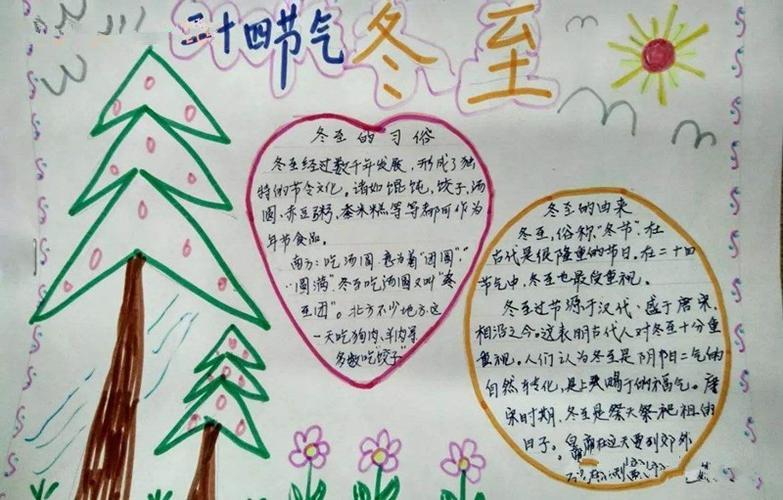 二十四节气
冬至
冬至的习俗
冬至经过数千年发展，形成了独
特的节令文化。诸如馄饨，饺子，汤
圆，赤豆粥，黍米糕等等都可作为
年节食品。
南方：吃汤圆意为着“团圆”“
圆满”冬至吃汤圆又叫“冬
至团”。北方不少地方，这
一天吃狗肉、羊肉
多数吃“饺子”
冬至的由来
冬至，俗称“冬节”，在
古代是很隆重的节日。在二十四
节气中，冬至也最受重视。
冬至过节源于汉代，盛于唐宋，
相沿之今。这表明古代人对冬至十分重
视。人们认为冬至是阴阳二气的
自然转化，是上天赐于的福气。唐
宋时期，冬至是祭天祭祀祖的
日子。皇在这天要到郊外